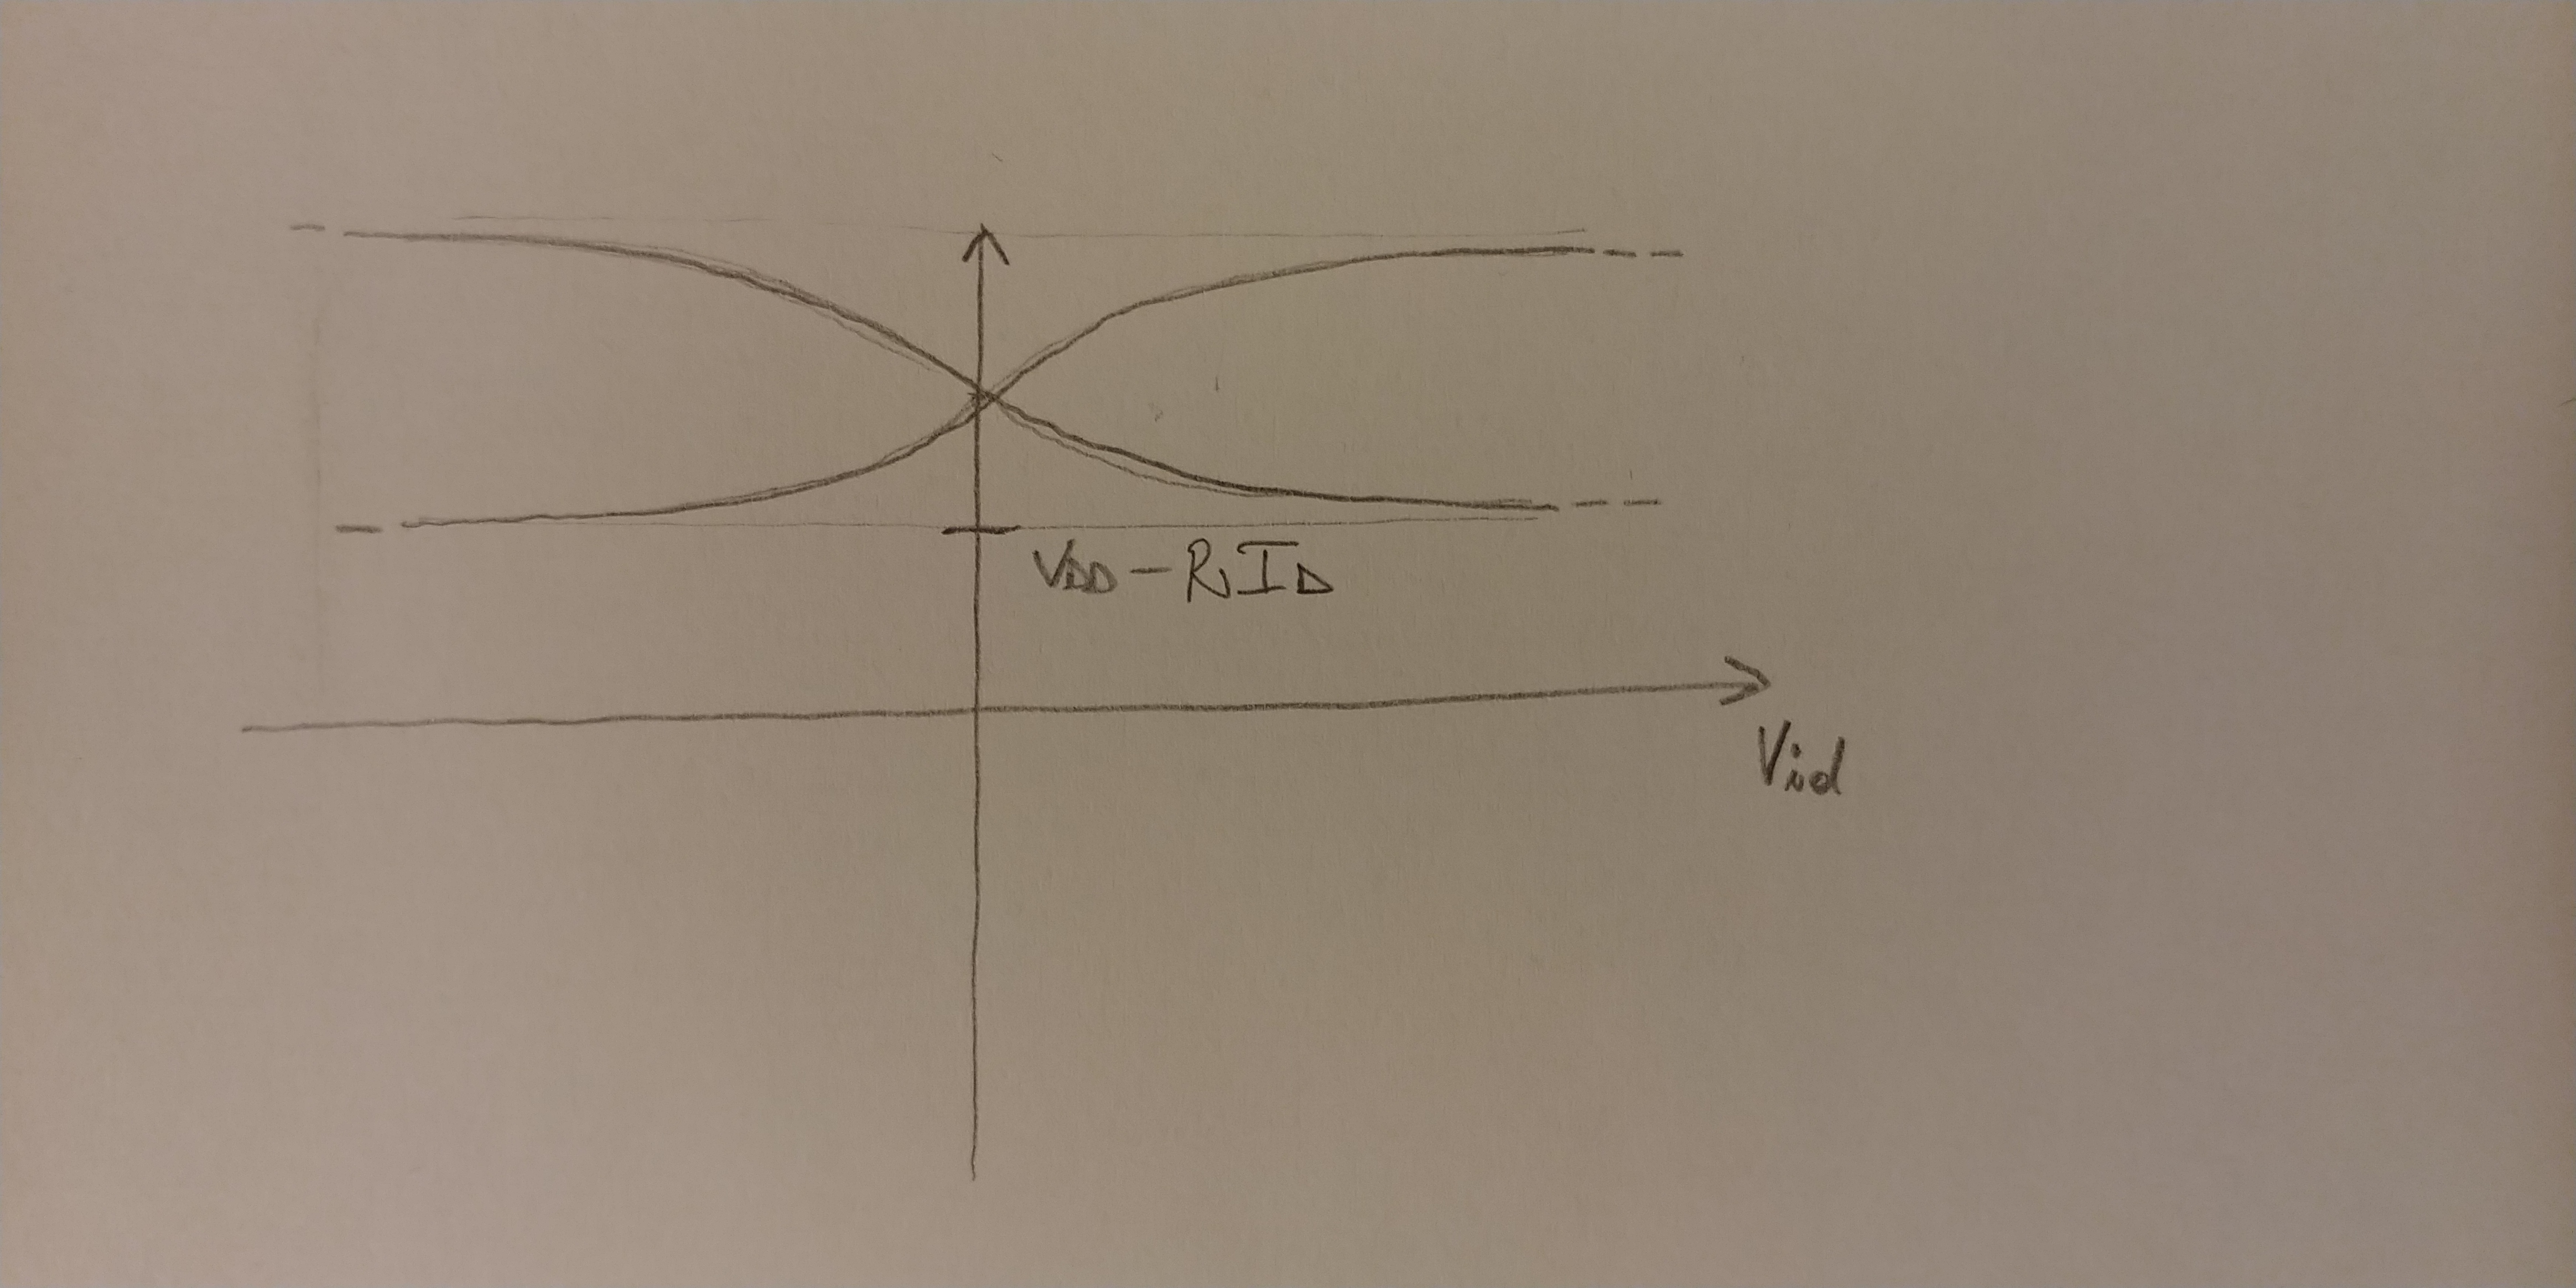 VDD - R ID
Vid